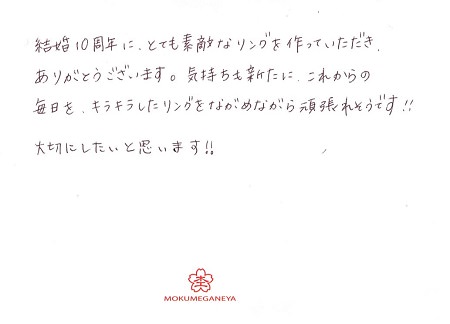 結婚10周年に、とても素敵なリングを作っていただき、
ありがとうございます。気持ちも新たに、これからの
毎日を、キラキラしたリングをながめながら頑張れそうです!!
大切にしたいと思います!!
MOKUMEGANEYA